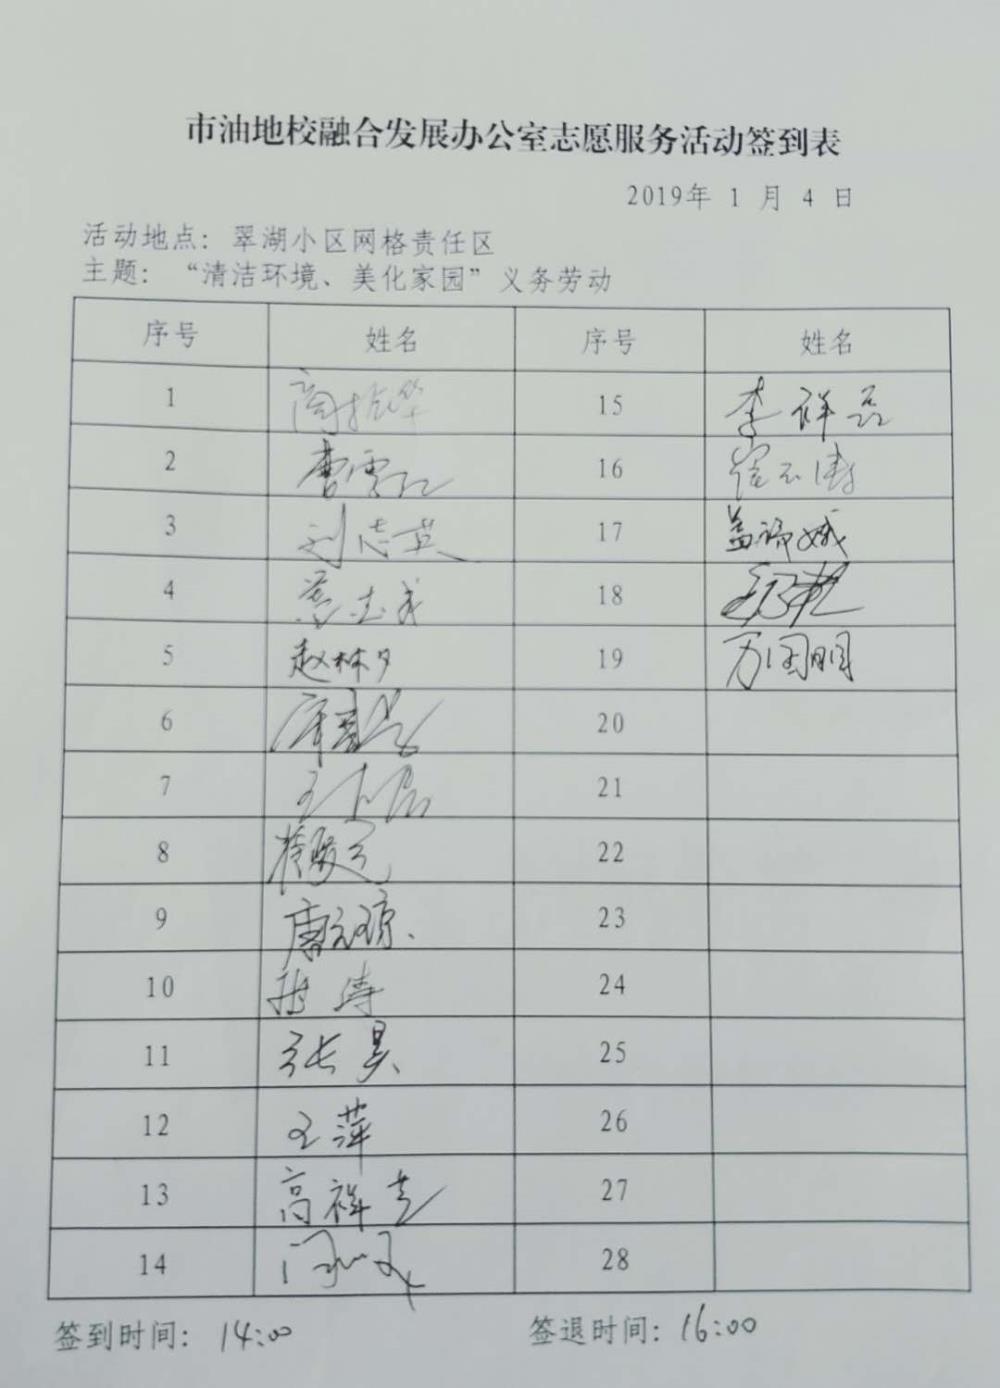 市油地校融合发展办公室志愿服务活动签到表
2019年 1 月 4 日
活动地点：翠湖小区网格责任区
主题：“清洁环境、美化家园”义务劳动
序号 姓名 序号 姓名
1 15 李祥磊
2 曹雪红 16
3 刘志英 17 盖
4 18
5 赵林夕 19 万国明
6 20
7 王 21
8 22
9 唐 23
10 涛 24
11 张昊 25
12 王萍 26
13 高祥 27
14 28
签到时间：14:00 签退时间：16:00